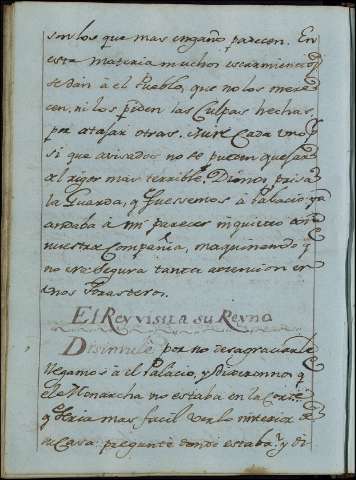 son los que mas engaño parecen. En
esta materia muchos escarmientos
se dàn à el Pueblo, que no los mere
cen, ni los piden las Culpas hechas,
por atajar otras. Mire Cada uno
si que avisados no se pueden quejar
al rigor mas terrible. Dionos prisa
la Guarda, q fuessemos à Palacio; ya
andaba à mi parecer inquieto con
nuestra Compañia, maquinando q
no era segura tanta atencion en
unos Forasteros.
El Rey visita su Reyno
Disimulè por no desagraciarle
llegamos à el Palacio, y Dixeronnos q
el Monarcha no estaba en la Corte
q seria mas facil ver lo interior de
su Casa: preguntè donde estaba? y di